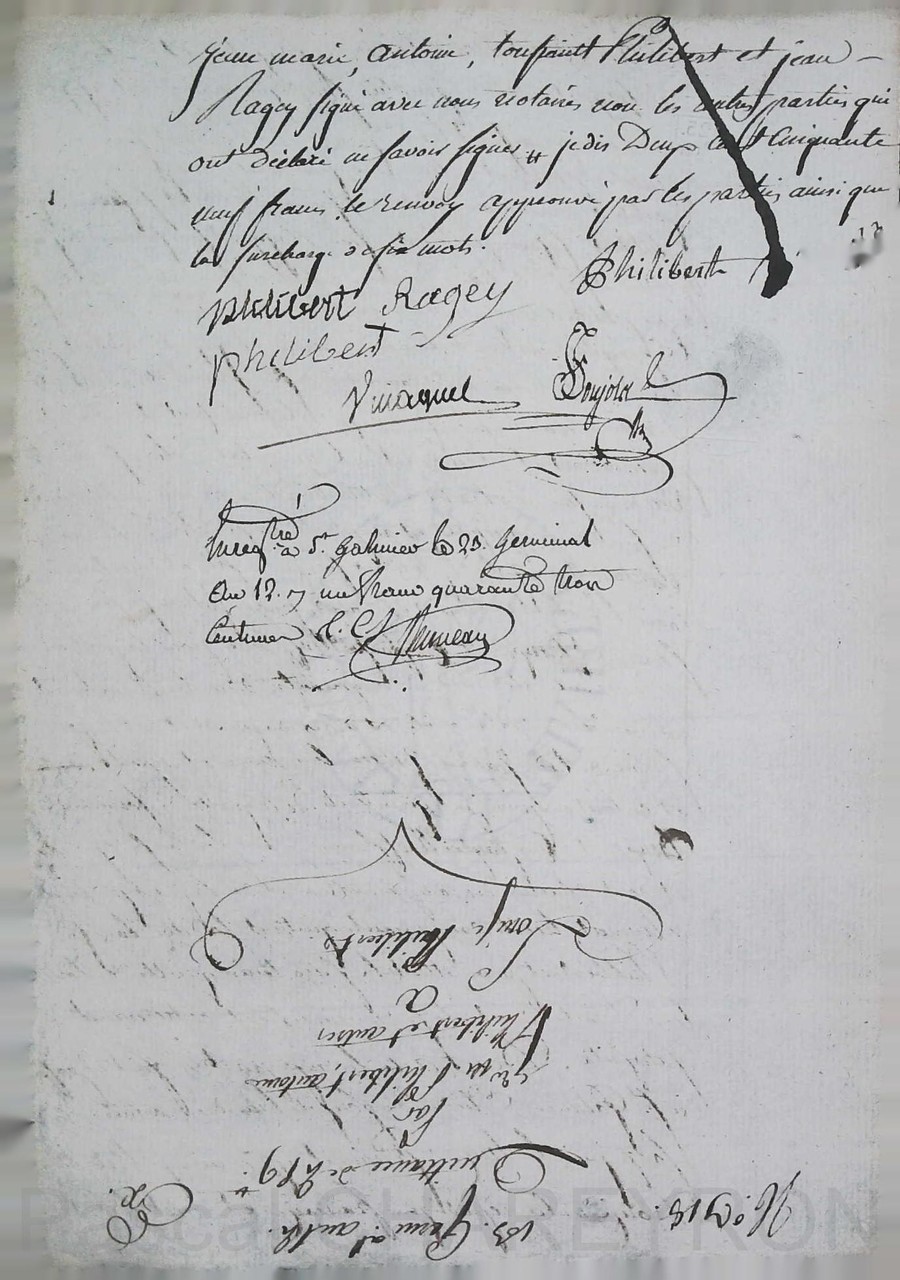 jean marie, antoine, toussaint Philibert et jean
Ragey signé avec nous notaires non les autres parties qui
ont déclaré ne savoir signer # je dis Deux cent Cinquante
neuf francs. le renvoy approuvé par les parties ainsi que
la surcharge de six mots.
philibert Ragey Philibert
philibert
Enregtré à St Galmier le 23 Germinal
an 12. un franc quarante trois
Centimes
N.
13. Germal an 12.
Quittance de 259
Par
Jean Mie Philibert, antoine
Philibert et autres
A
Philibert
Pascal CHAREYRON